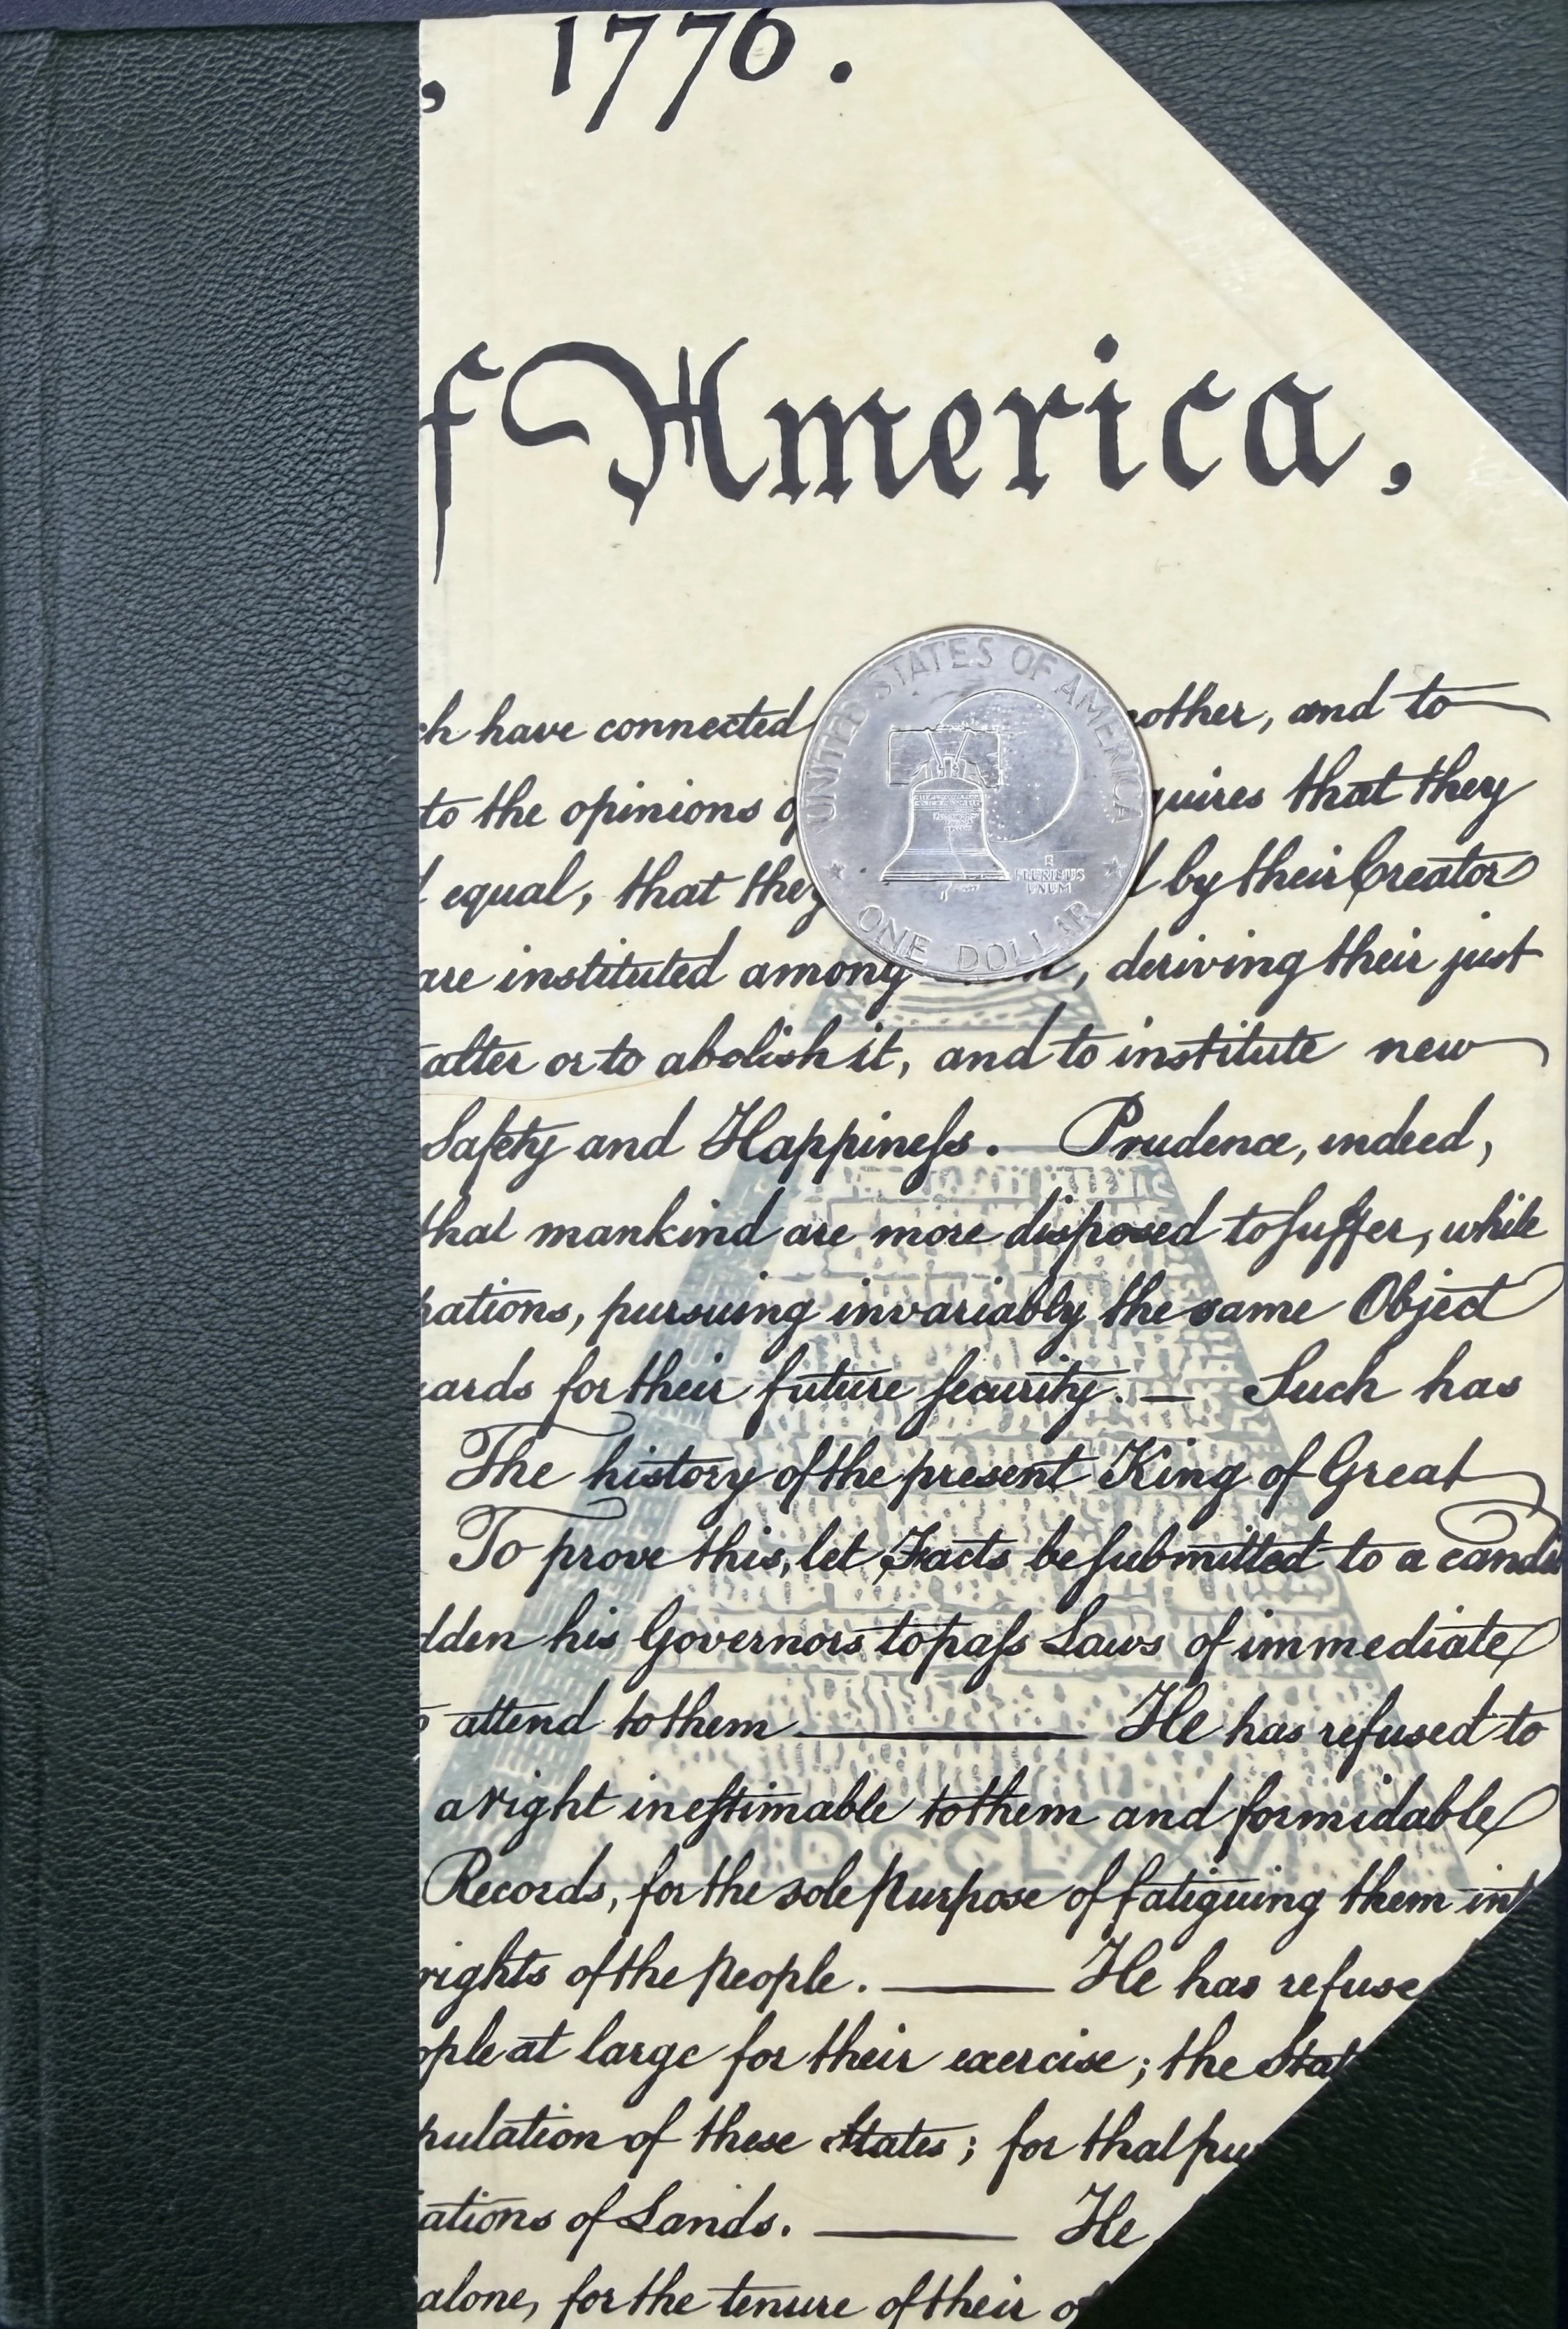 , 1776.
f America,
UNITED STATES OF AMERICA
E
PLURIBUS
UNUM
ONE DOLLAR
ch have connected other, and to
to the opinions o quires that they
d equal, that they d by their Creator
are instituted among , deriving their just
alter or to abolish it, and to institute new
Safety and Happineſs. Prudence, indeed,
that mankind are more disposed to ſuffer, while
pations, pursuing invariably the same Object
ards for their future ſecurity. — Such has
The history of the present King of Great
To prove this, let Facts be ſubmitted to a candi
dden his Governors to paſs Laws of immediate
o attend to them ——— He has refused to
a right ineſtimable to them and formidable
MDCCLXXVI
Records, for the sole Purpose of fatiguing them int
rights of the People. —— He has refuse
ople at large for their exercise; the Stat
pulation of these States; for that pur
iations of Lands. —— He
alone, for the tenure of their of